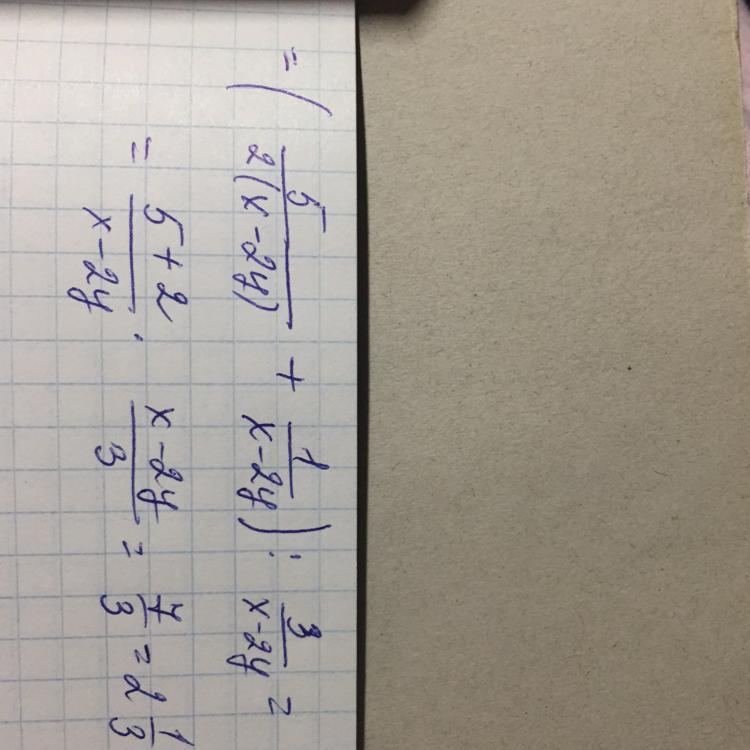 = ( 5/2(x-2y) + 1/x-2y ) : 3/x-2y =
= 5+2/x-2y . x-2y/3 = 7/3 = 2 1/3